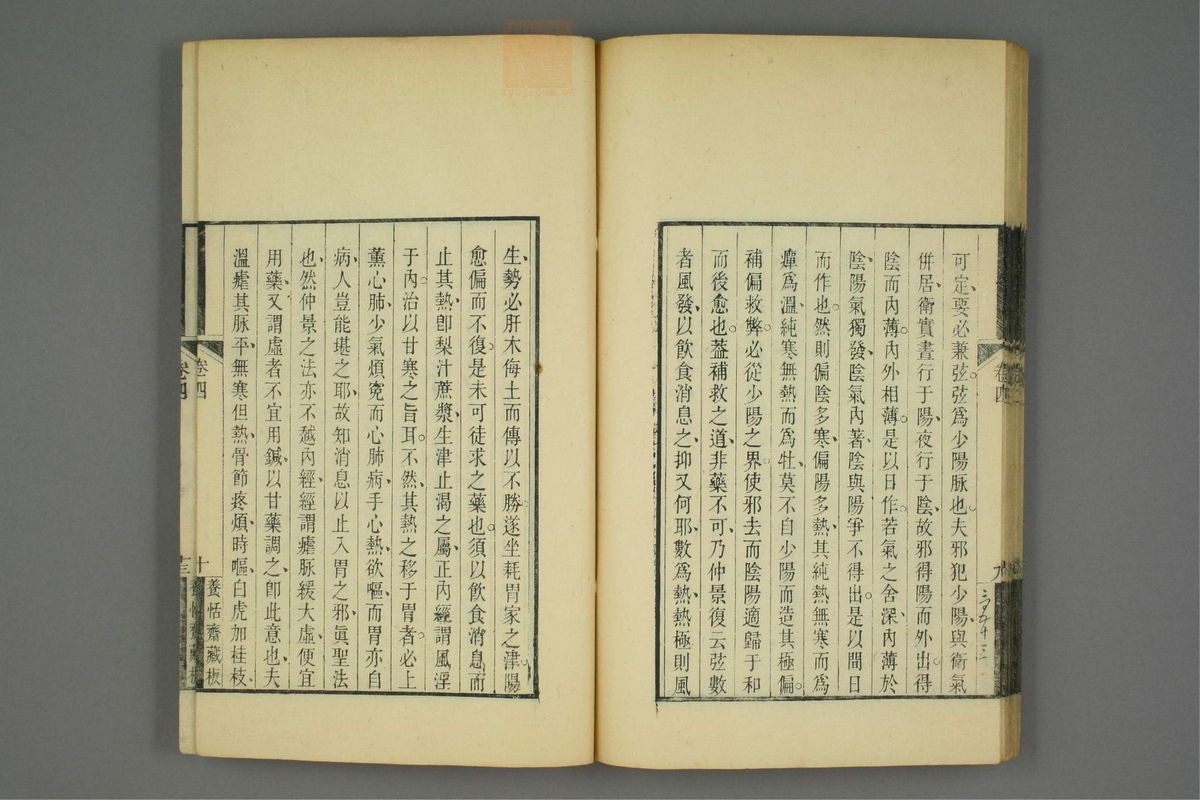 可定要必兼弦弦爲少陽脉也夫邪犯少陽與衛氣
併居衛實晝行于陽夜行于陰故邪得陽而外出得
陰而內薄內外相薄是以日作若氣之舍深內薄於
陰陽氣獨發陰氣內著陰與陽爭不得出是以間日
而作也然則偏陰多寒偏陽多熱其純熱無寒而爲
癉爲溫純寒無熱而爲牡莫不自少陽而造其極偏
補偏救弊必從少陽之界使邪去而陰陽適歸于和
而後愈也葢補救之道非藥不可乃仲景復云弦數
者風發以飲食消息之抑又何耶數爲熱熱極則風
卷四
九
生勢必肝木侮土而傳以不勝遂坐耗胃家之津陽
愈偏而不復是未可徒求之藥也須以飲食消息而
止其熱卽梨汁蔗漿生津止渴之屬正內經謂風淫
于內治以甘寒之旨耳不然其熱之移于胃者必上
薰心肺少氣煩寃而心肺病手心熱欲嘔而胃亦自
病人豈能堪之耶故知消息以止入胃之邪眞聖法
也然仲景之法亦不越內經經謂瘧脉緩大虛便宜
用藥又謂虛者不宜用鍼以甘藥調之卽此意也夫
溫瘧其脉平無寒但熱骨節疼煩時嘔白虎加桂枝
卷四
十
養恬齋藏板
卷四
十三
養恬齋藏板